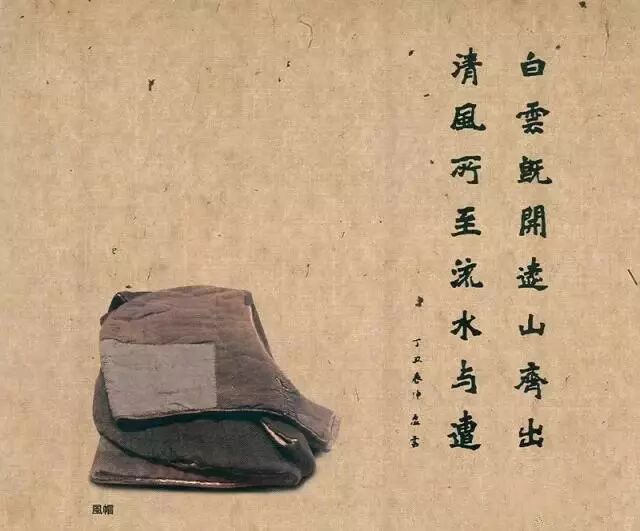 白雲既開遠山齊出
清風所至流水与遭
丁丑春仲
風帽